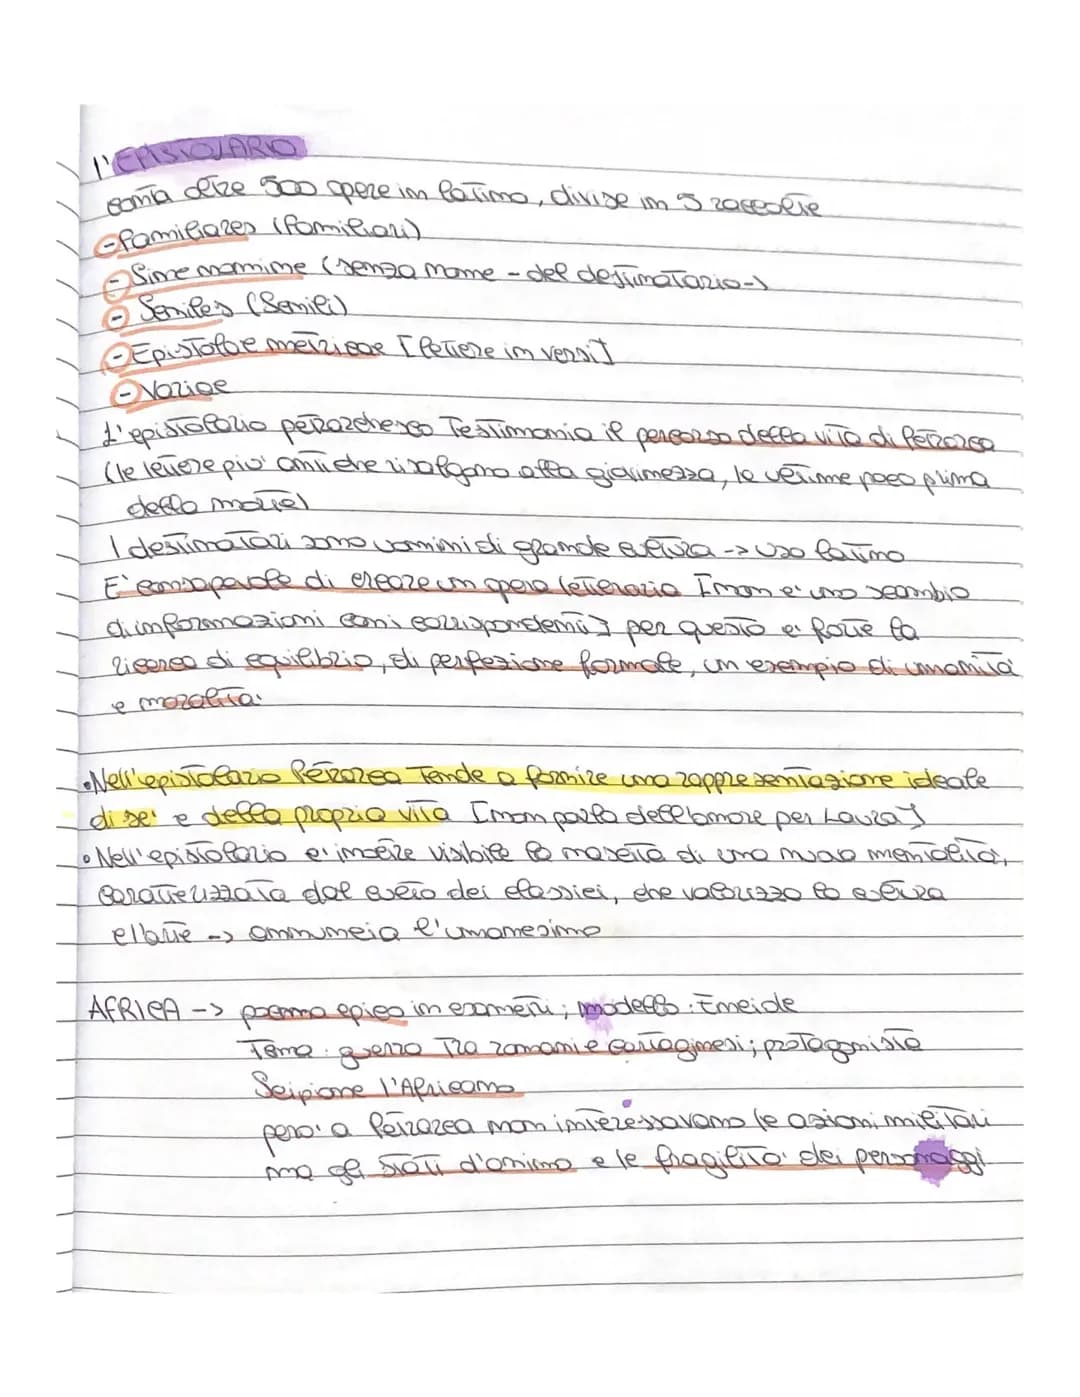 l'EPISTOLARIO
conta oltre 500 opere in latino, divise in 5 raccolte
- familiares (familiari)
- Sine nomine (senza nome - del destinatario-)
- Seniles (Senili)
- Epistolae metricae [lettere in versi]
- Variae
L'epistolario petrarchesco testimonia il percorso della vita di Petrarca
(le lettere piu' antiche risalgono alla giovinezza, le ultime poco prima
della morte)
I destinatari sono uomini di grande cultura -> uso latino
E' consapevole di creare un opera letteraria [non e' uno scambio
di informazioni con i corrispondenti] per questo e' forte la
ricerca di equilibrio, di perfezione formale, un esempio di umanità
e moralità.
• Nell'epistolario Petrarca tende a fornire una rappresentazione ideale
di se' e della propria vita [non parla dell'amore per Laura]
• Nell'epistolario e' inoltre visibile la nascita di una nuova mentalità,
caratterizzata dal culto dei classici, che valorizza la cultura
e l'arte -> annuncia l'umanesimo
AFRICA -> poema epico in esametri; modello: Eneide
Tema: guerra tra romani e cartaginesi; protagonista
Scipione l'Africano
pero' a Petrarca non interessavano le azioni militari
ma gli stati d'animo e le fragilita' dei personaggi